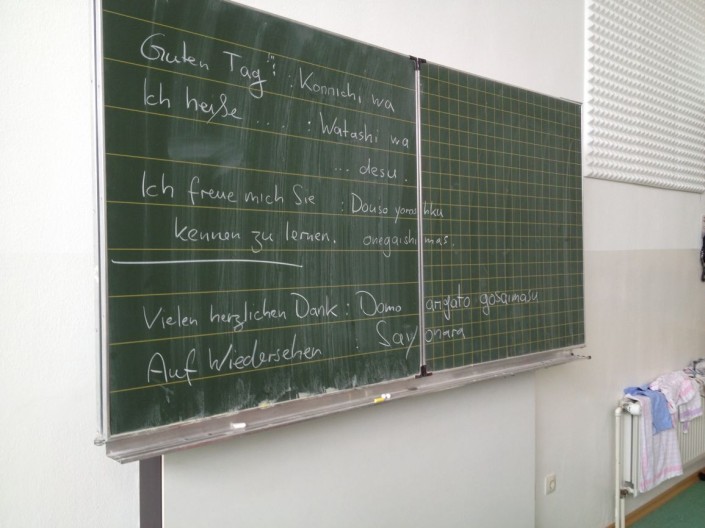 Guten Tag : Konnichi wa
Ich heiße .... : Watashi wa
... desu.
Ich freue mich Sie : Douso yoroshku
kennen zu lernen. onegaishimas.
Vielen herzlichen Dank : Domo arigato gosaimasu
Auf Wiedersehen : Sayonara